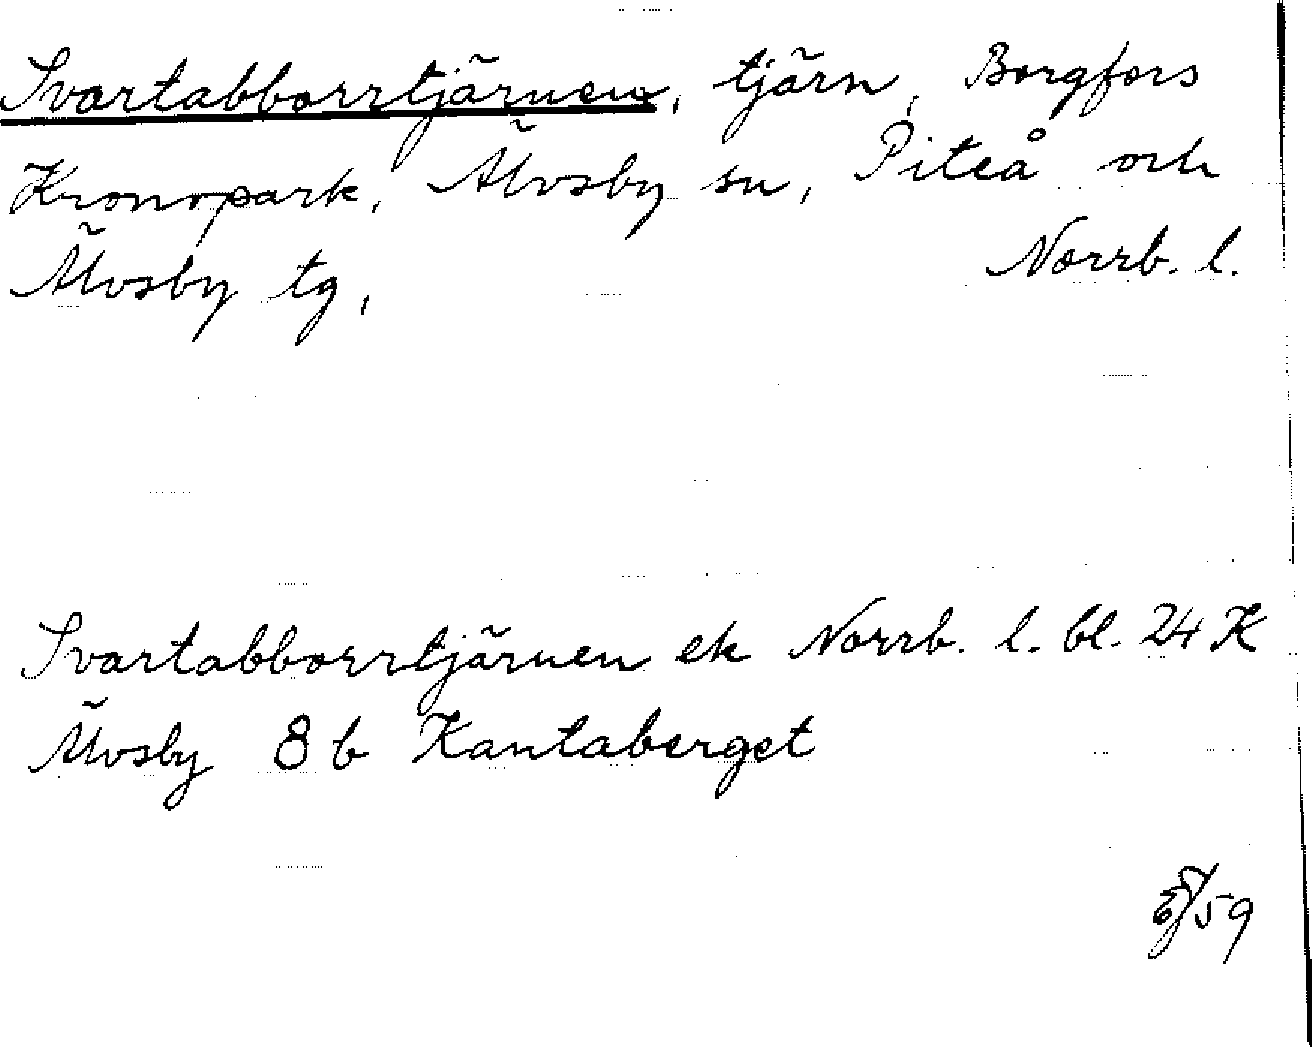 Svartabborrtjärnen, tjärn, Borgfors
Kronopark, Älvsby sn, Piteå och
Älvsby tg, Norrb. l.
Svartabborrtjärnen ek Norrb. l. bl. 24 K
Älvsby 8 b Kantaberget
/59